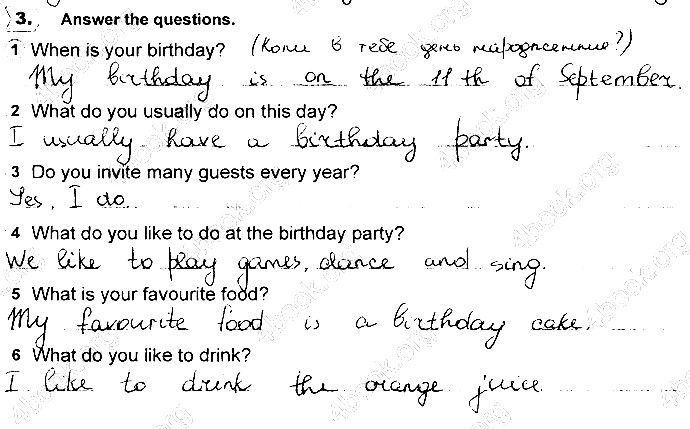 3. Answer the questions.
1 When is your birthday? (Коли в тебе день народження?)
My birthday is on the 11th of September.
2 What do you usually do on this day?
I usually have a birthday party.
3 Do you invite many guests every year?
Yes, I do.
4 What do you like to do at the birthday party?
We like to play games, dance and sing.
5 What is your favourite food?
My favourite food is a birthday cake.
6 What do you like to drink?
I like to drink the orange juice.